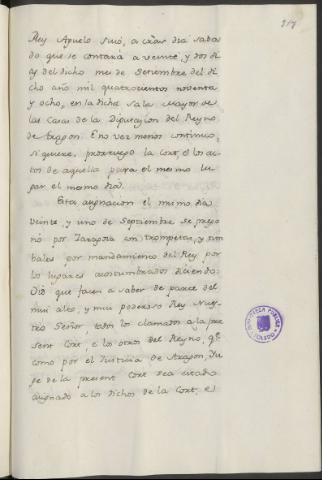 217
Rey Apuelo suio, a cras dia saba
do que se contarà a veinte, y dos di
as del dicho mes de Setiembre del di
cho año mil quatrocientos noventa
y ocho, en la dicha Sala Mayor de
las Casas de la Diputacion del Reyno
de Aragon. E no res menos continuo,
si quiere, prorruego la Cort, e los ac
tos de aquella para el mesmo lu
gar el mesmo dia.
Esta asignacion el mismo dia
veinte, y uno de Septiembre se prego
nò por Zaragoza con trompetas, y tim
bales por mandamiento del Rey por
los lugares acostumbrados diciendo:
Oid que facen a saber de parte del
mui alto, y mui poderoso Rey Nues
tro Señor, todos los clamados a la pre
sent Cort, e los otros del Reyno, qe
como por el Justicia de Aragon, Ju
ge de la present Cort sea estado
asignado a los dichos de la Cort, e
BIBLIOTECA PUBLICA
TOLEDO